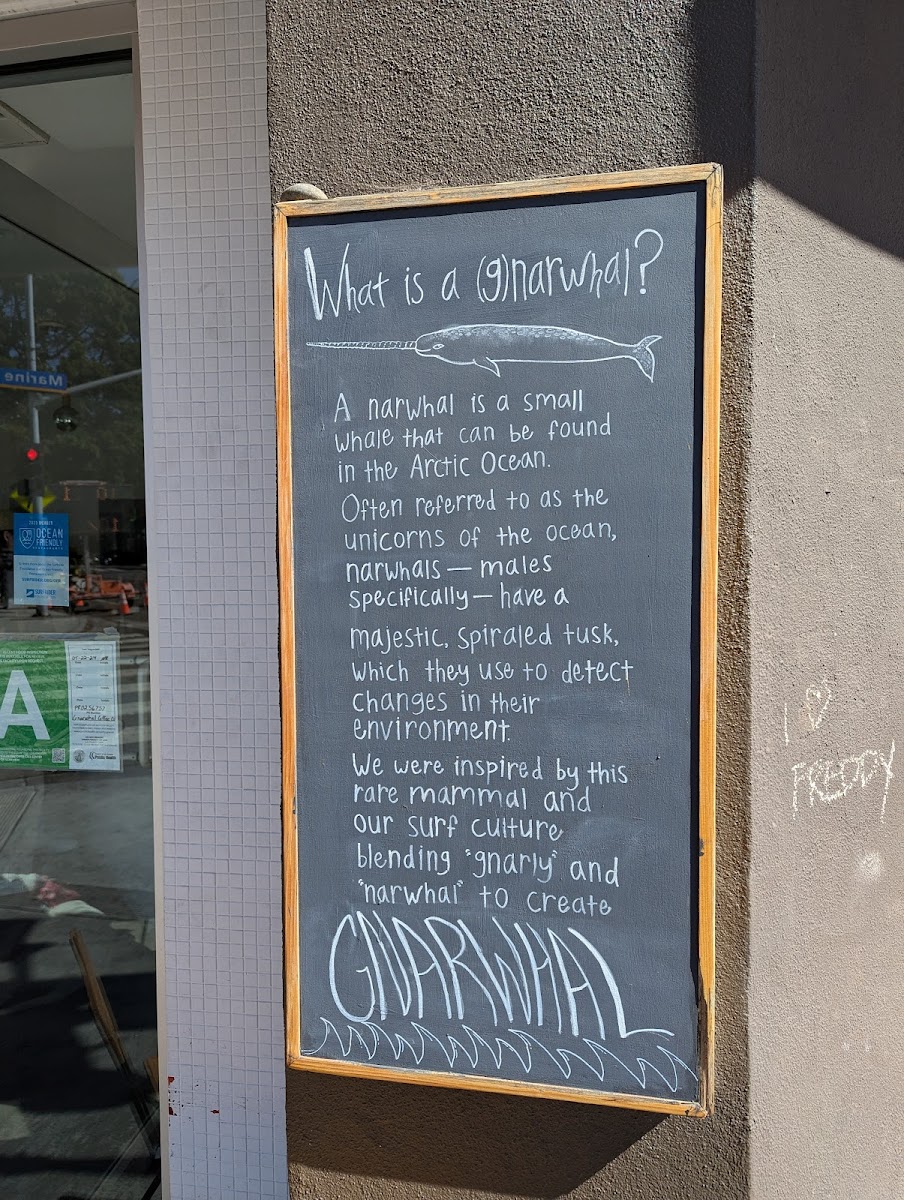 What is a (g)narwhal?
A narwhal is a small
whale that can be found
in the Arctic Ocean.
Often referred to as the
unicorns of the ocean,
narwhals — males
specifically — have a
majestic, spiraled tusk,
which they use to detect
changes in their
environment.
We were inspired by this
rare mammal and
our surf culture
blending "gnarly" and
"narwhal" to create
GNARWHAL
Marine
OCEAN
FRIENDLY
A
FREDDY